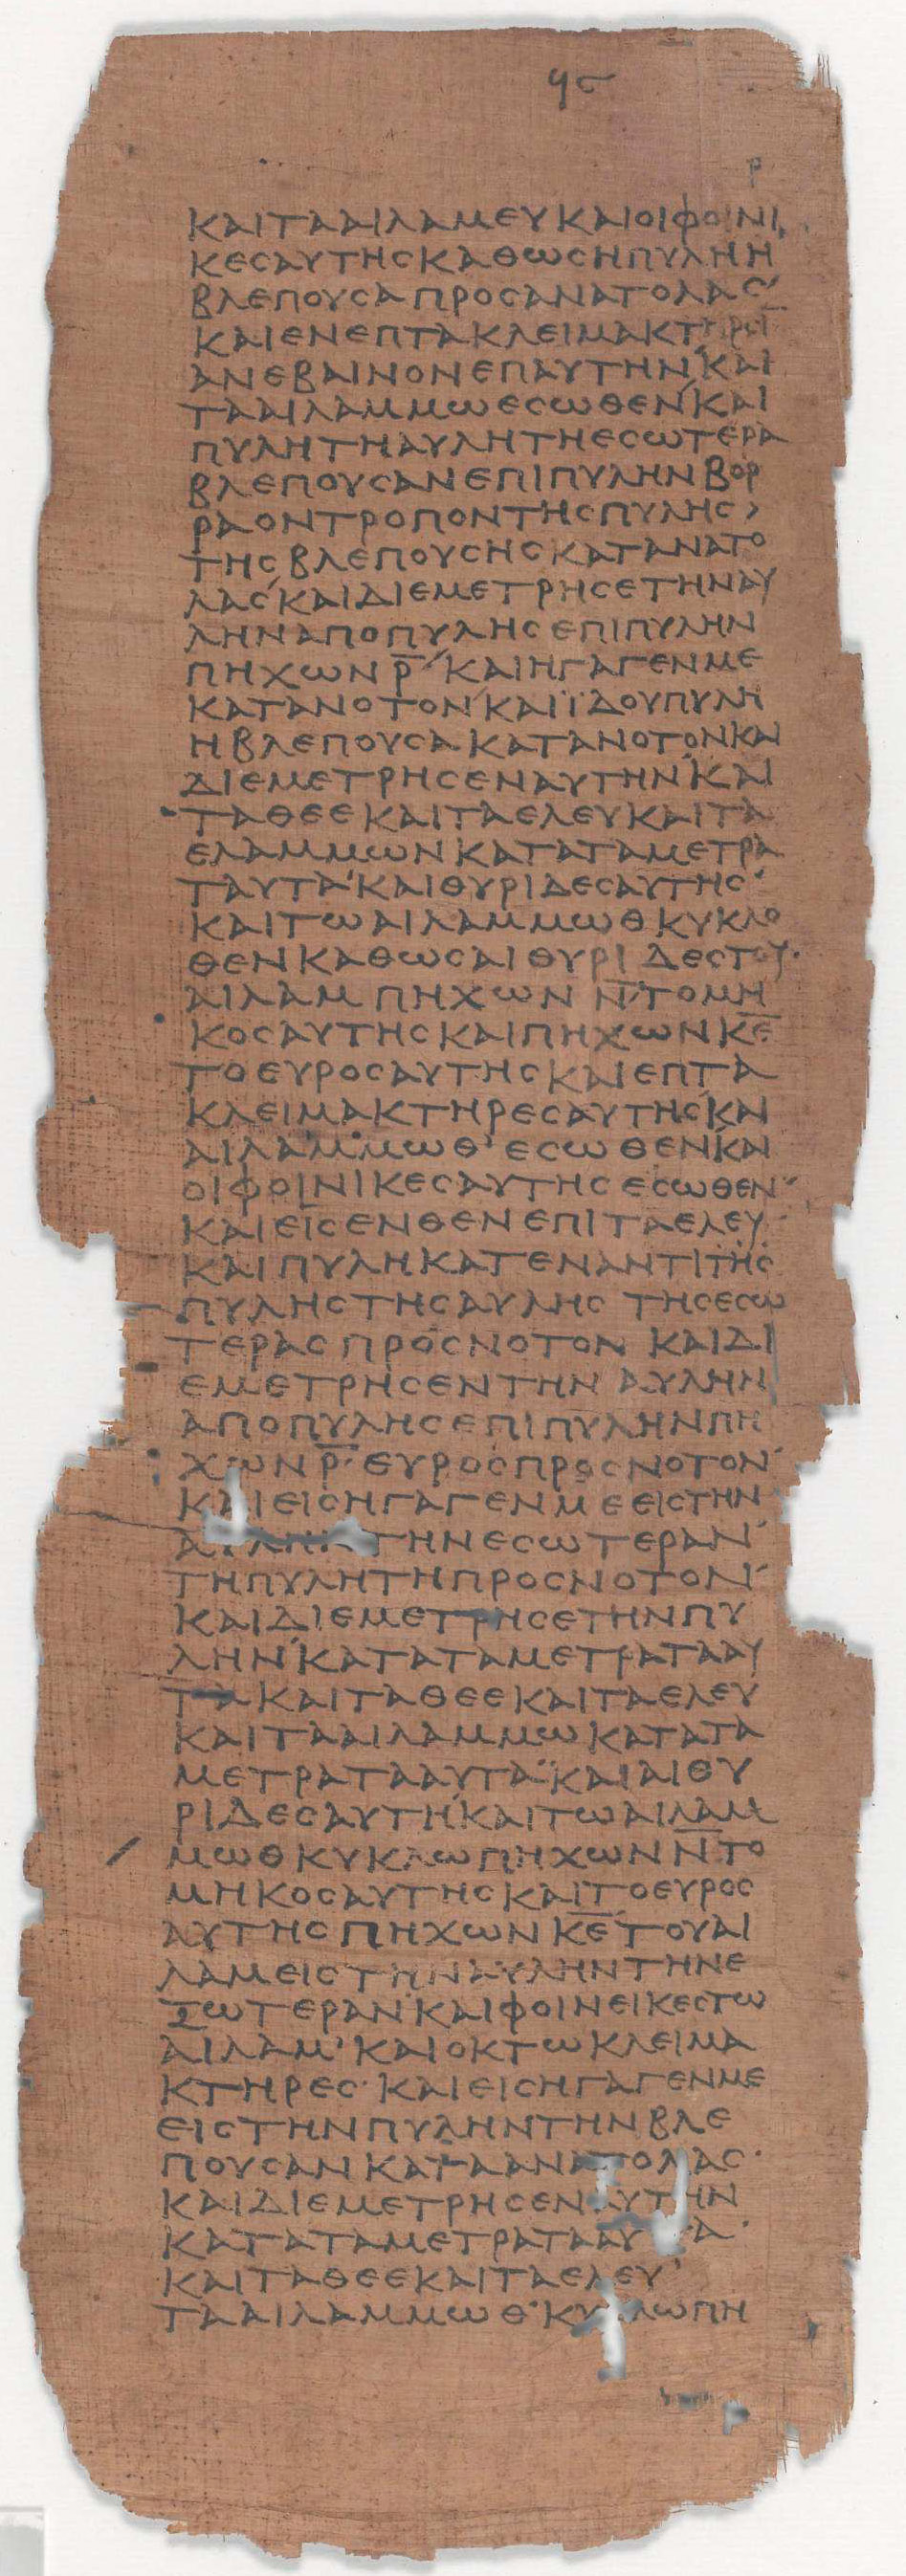 ϥϛ
ρ
ΚΑΙΤΑΑΙΛΑΜΕΥΚΑΙΟΙΦΟΙΝΙ
ΚΕϹΑΥΤΗϹΚΑΘΩϹΗΠΥΛΗΗ
ΒΛΕΠΟΥϹΑΠΡΟϹΑΝΑΤΟΛΑϹ
ΚΑΙΕΝΕΠΤΑΚΛΕΙΜΑΚΤΗΡϹΙ
ΑΝΕΒΑΙΝΟΝΕΠΑΥΤΗΝ'ΚΑΙ
ΤΑΑΙΛΑΜΜΩΕϹΩΘΕΝ'ΚΑΙ
ΠΥΛΗΤΗΑΥΛΗΤΗΕϹΩΤΕΡΑ
ΒΛΕΠΟΥϹΑΝΕΠΙΠΥΛΗΝΒΟΡ
ΡΑΟΝΤΡΟΠΟΝΤΗϹΠΥΛΗϹ›
ΤΗϹΒΛΕΠΟΥϹΗϹΚΑΤΑΝΑΤΟ
ΛΑϹ'ΚΑΙΔΙΕΜΕΤΡΗϹΕΤΗΝΑΥ
ΛΗΝΑΠΟΠΥΛΗϹΕΠΙΠΥΛΗΝ
ΠΗΧΩΝΡ̅'ΚΑΙΗΓΑΓΕΝΜΕ
ΚΑΤΑΝΟΤΟΝ'ΚΑΙΪΔΟΥΠΥΛΗ
ΗΒΛΕΠΟΥϹΑΚΑΤΑΝΟΤΟΝΚΑΙ
ΔΙΕΜΕΤΡΗϹΕΝΑΥΤΗΝ'ΚΑΙ
ΤΑΘΕΕΚΑΙΤΑΕΛΕΥΚΑΙΤΑ
ΕΛΑΜΜΩΝΚΑΤΑΤΑΜΕΤΡΑ
ΤΑΥΤΑ'ΚΑΙΘΥΡΙΔΕϹΑΥΤΗϹ'
ΚΑΙΤΩΑΙΛΑΜΜΩΘΚΥΚΛΟ
ΘΕΝΚΑΘΩϹΑΙΘΥΡΙΔΕϹΤΟΥ·
ΑΙΛΑΜΠΗΧΩΝΝ̅'ΤΟΜΗ
ΚΟϹΑΥΤΗϹΚΑΙΠΗΧΩΝΚ̅Ε̅
ΤΟΕΥΡΟϹΑΥΤΗϹΚΑΙΕΠΤΑ
ΚΛΕΙΜΑΚΤΗΡΕϹΑΥΤΗϹ'ΚΑΙ
ΑΙΛΑΜ'ΜΩΘ'ΕϹΩΘΕΝ'ΚΑΙ
ΟΙΦΟΙΝΙΚΕϹΑΥΤΗϹΕϹΩΘΕΝ'
ΚΑΙΕΙϹΕΝΘΕΝΕΠΙΤΑΕΛΕΥ
ΚΑΙΠΥΛΗΚΑΤΕΝΑΝΤΙΤΗϹ
ΠΥΛΗϹΤΗϹΑΥΛΗϹΤΗϹΕϹΩ
ΤΕΡΑϹΠΡΟϹΝΟΤΟΝΚΑΙΔΙ
ΕΜΕΤΡΗϹΕΝΤΗΝΑΥΛΗΝ
ΑΠΟΠΥΛΗϹΕΠΙΠΥΛΗΝΠΗ
ΧΩΝΡ̅·ΕΥΡΟϹΠΡΟϹΝΟΤΟΝ'
ΚΑΙΕΙϹΗΓΑΓΕΝΜΕΕΙϹΤΗΝ
ΑΥΛΗΝΤΗΝΕϹΩΤΕΡΑΝ'
ΤΗΠΥΛΗΤΗΠΡΟϹΝΟΤΟΝ'
ΚΑΙΔΙΕΜΕΤΡΗϹΕΤΗΝΠΥ
ΛΗΝ'ΚΑΤΑΤΑΜΕΤΡΑΤΑΑΥ
ΤΑΚΑΙΤΑΘΕΕΚΑΙΤΑΕΛΕΥ
ΚΑΙΤΑΑΙΛΑΜΜΩΚΑΤΑΤΑ
ΜΕΤΡΑΤΑΑΥΤΑ'ΚΑΙΑΙΘΥ
ΡΙΔΕϹΑΥΤΗ'ΚΑΙΤΩΑΙΛΑΜ
ΜΩΘΚΥΚΛΩΠΗΧΩΝΝ̅ΤΟ
ΜΗΚΟϹΑΥΤΗϹΚΑΙΤΟΕΥΡΟϹ
ΑΥΤΗϹΠΗΧΩΝΚ̅Ε̅ΤΟΥΑΙ
ΛΑΜΕΙϹΤΗΝΑΥΛΗΝΤΗΝΕ
ΞΩΤΕΡΑΝ'ΚΑΙΦΟΙΝΕΙΚΕϹΤΩ
ΑΙΛΑΜ'ΚΑΙΟΚΤΩΚΛΕΙΜΑ
ΚΤΗΡΕϹ·ΚΑΙΕΙϹΗΓΑΓΕΝΜΕ
ΕΙϹΤΗΝΠΥΛΗΝΤΗΝΒΛΕ
ΠΟΥϹΑΝΚΑΤΑΑΝΑΤΟΛΑϹ·
ΚΑΙΔΙΕΜΕΤΡΗϹΕΝΑΥΤΗΝ
ΚΑΤΑΤΑΜΕΤΡΑΤΑΑΥΤΑ·
ΚΑΙΤΑΘΕΕΚΑΙΤΑΕΛΕΥ'
ΤΑΑΙΛΑΜΜΩΘ'ΚΥΚΛΩΠΗ